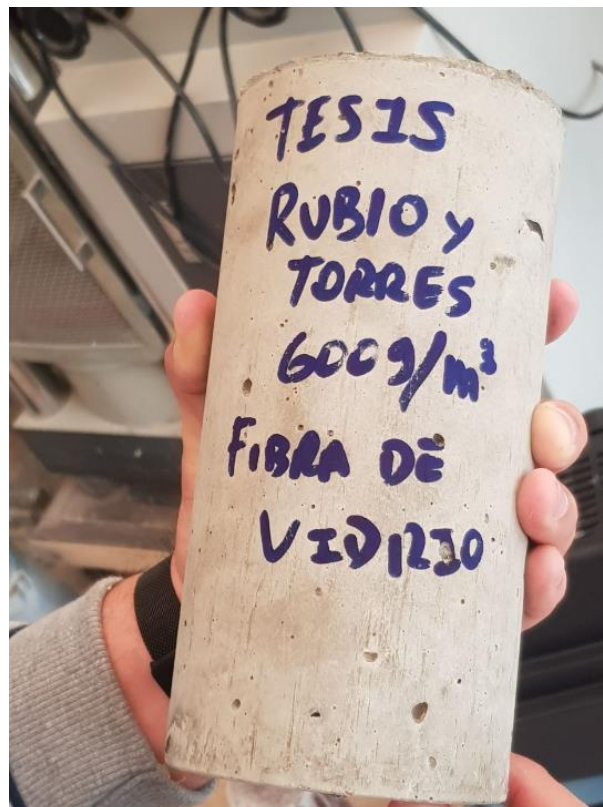 TESIS
RUBIO y
TORRES
600g/m³
FIBRA DE
VIDRIO